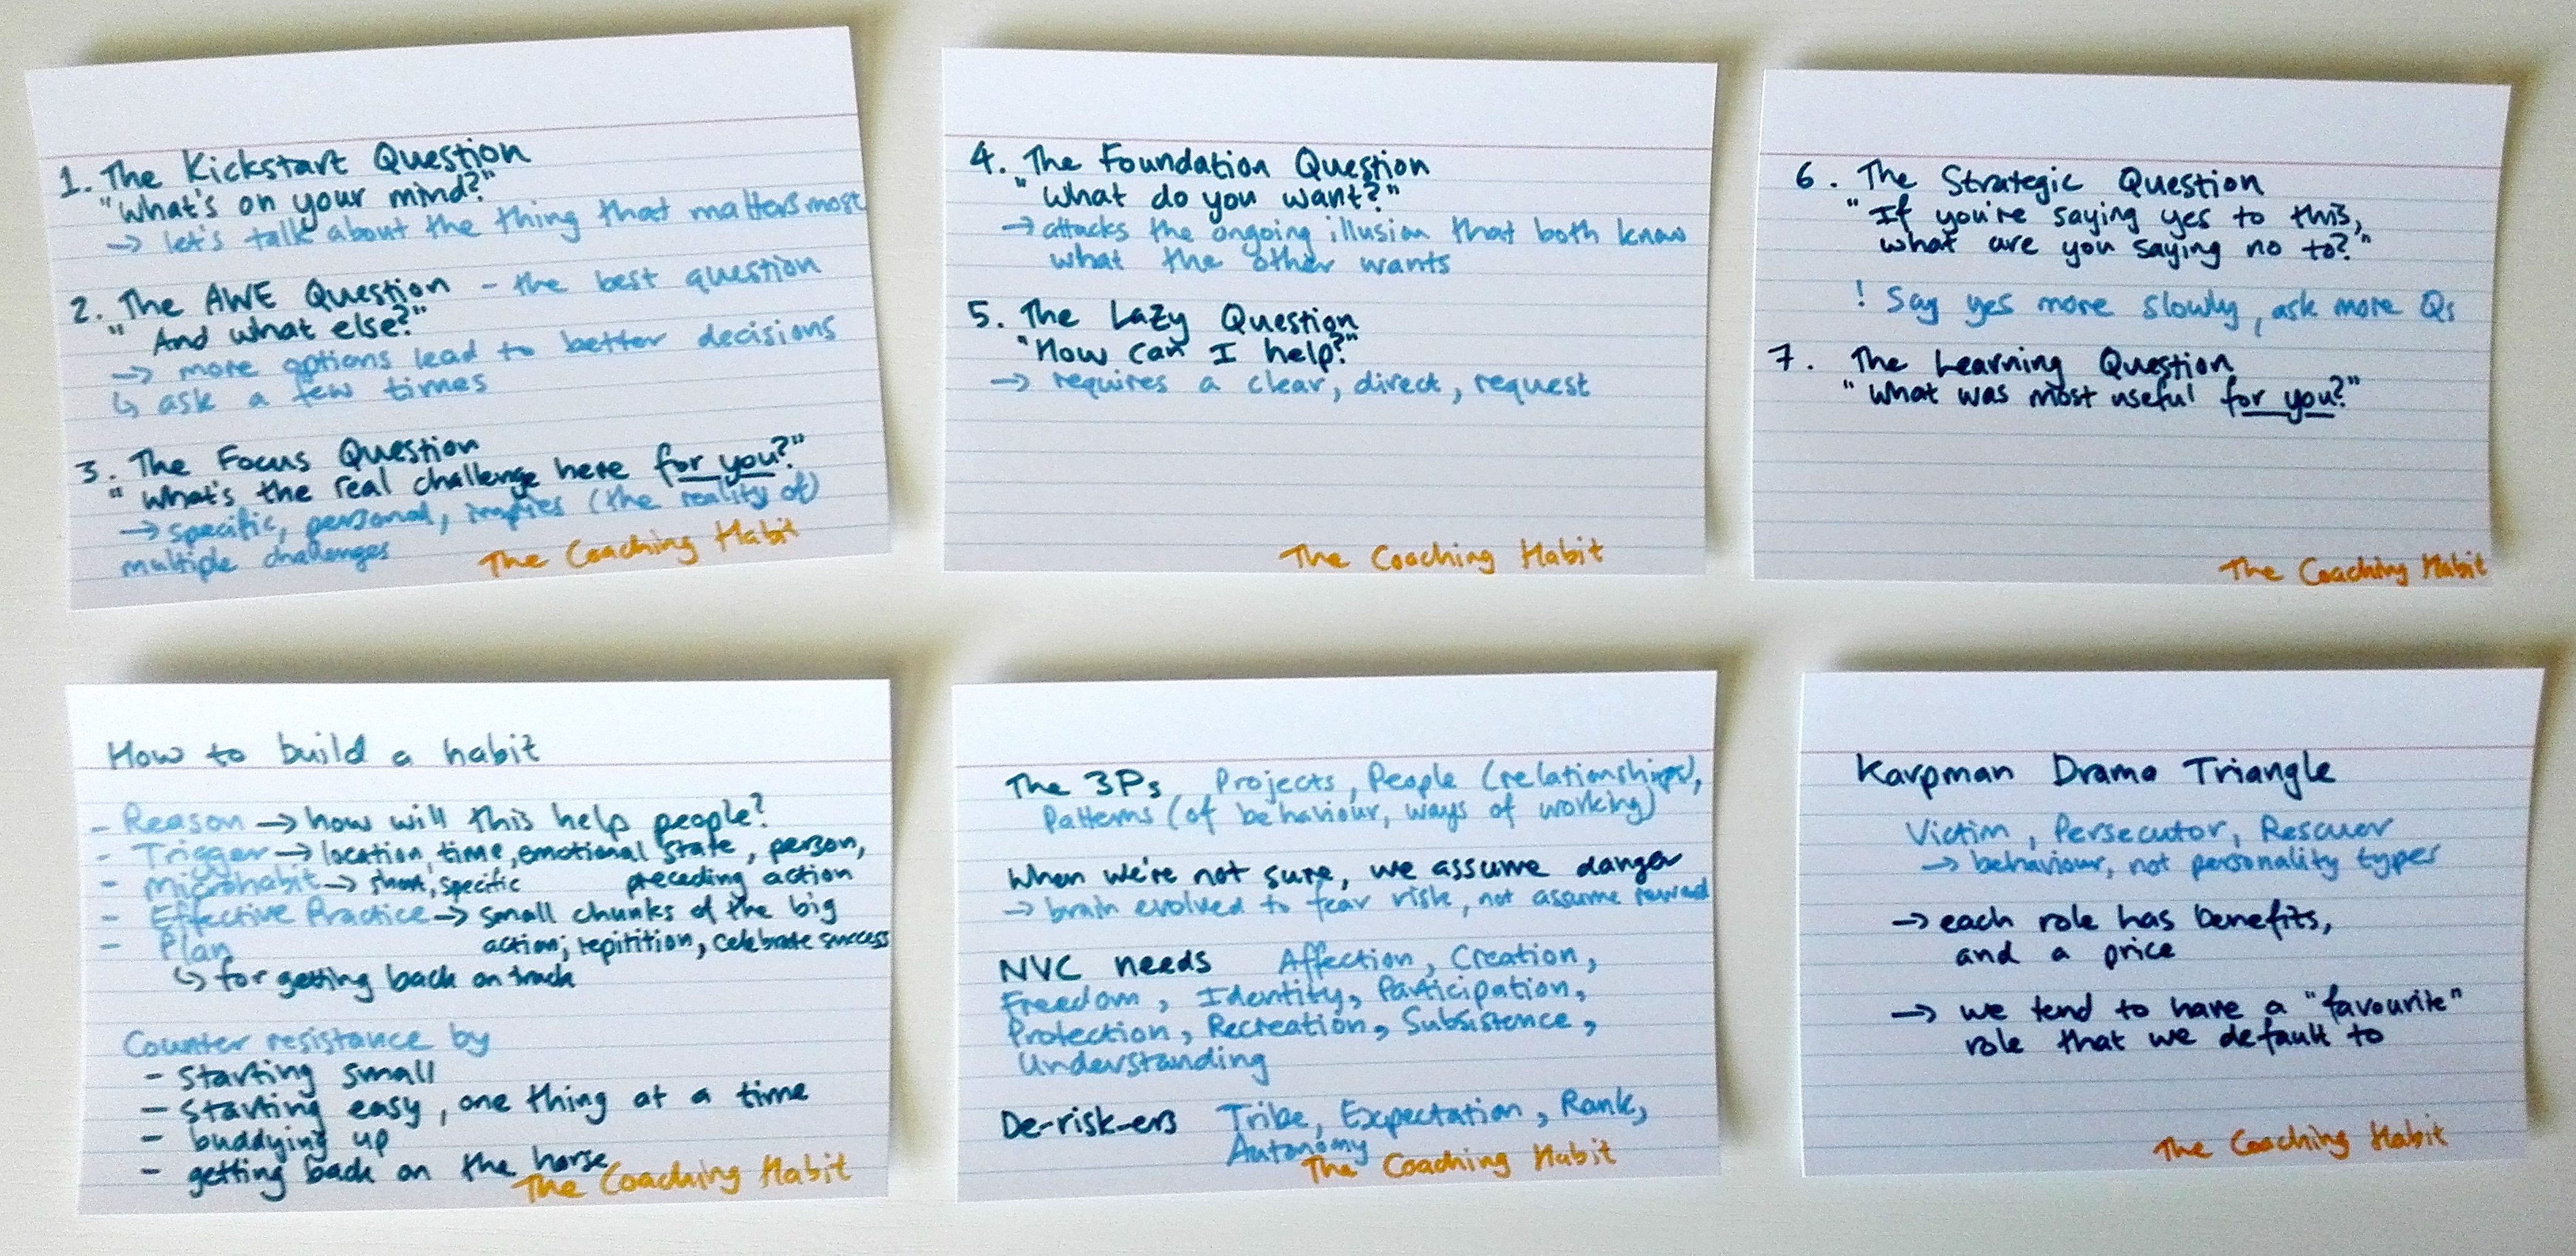 1. The Kickstart Question
"What's on your mind?"
→ let's talk about the thing that matters most
2. The AWE Question - the best question
"And what else?"
→ more options lead to better decisions
↳ ask a few times
3. The Focus Question
"What's the real challenge here for you?"
→ specific, personal, implies (the reality of)
multiple challenges
The Coaching Habit
4. The Foundation Question
"What do you want?"
→ attacks the ongoing illusion that both know
what the other wants
5. The Lazy Question
"How can I help?"
→ requires a clear, direct, request
The Coaching Habit
6. The Strategic Question
"If you're saying yes to this,
what are you saying no to?"
! Say yes more slowly, ask more Qs
7. The Learning Question
"What was most useful for you?"
The Coaching Habit
How to build a habit
- Reason → how will this help people?
- Trigger → location, time, emotional state, person,
preceding action
- Microhabit → short, specific
- Effective Practice → small chunks of the big
action; repitition, celebrate success
- Plan
↳ for getting back on track
Counter resistance by
- starting small
- starting easy, one thing at a time
- buddying up
- getting back on the horse
The Coaching Habit
The 3Ps Projects, People (relationships),
Patterns (of behaviour, ways of working)
When we're not sure, we assume danger
→ brain evolved to fear risk, not assume reward
NVC needs Affection, Creation,
Freedom, Identity, Participation,
Protection, Recreation, Subsistence,
Understanding
De-risk-ers Tribe, Expectation, Rank,
Autonomy
The Coaching Habit
Karpman Drama Triangle
Victim, Persecutor, Rescuer
→ behaviour, not personality types
→ each role has benefits,
and a price
→ we tend to have a "favourite"
role that we default to
The Coaching Habit